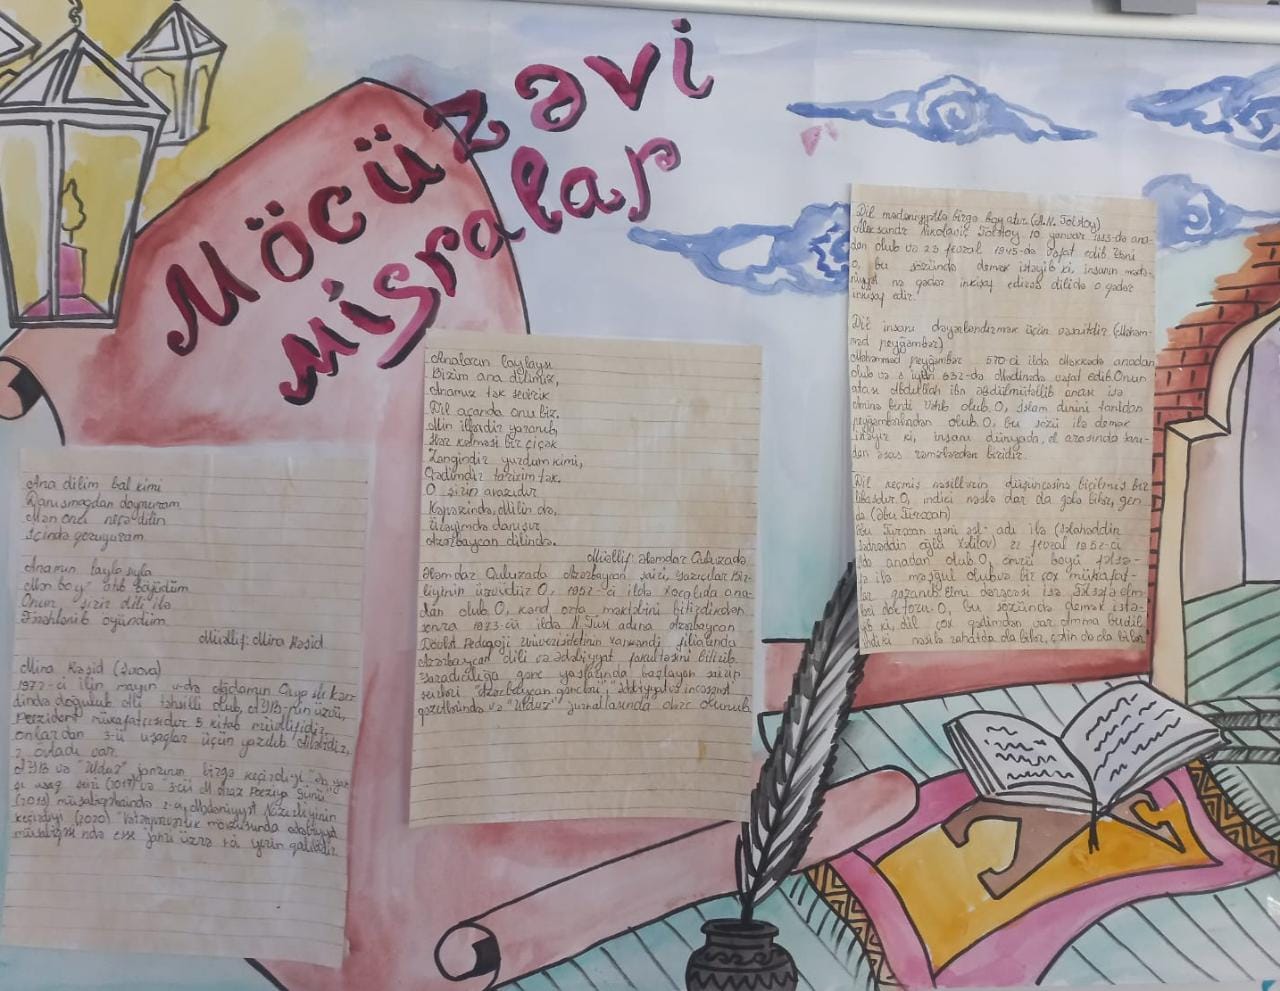 Möcüzəvi
misralar
Ana dilim bal kimi
Danışmaqdan doymuram
Mən onu neçə dilin
İçində qoruyuram
Anamın layla sıyla
Mən boy atıb böyüdüm
Onun şirin dili ilə
öyündüm
Müəllif: Mina Rəşid
Mina Rəşid
1977-ci ilin mayın
dində doğulub Ali təhsilli olub, AYB-nin üzvü,
Prezident mükafatçısıdır 5 kitab müəllifidir,
onlardan 3-ü uşaqlar üçün yazılıb Ailəlidir,
2 övladı var.
AYB və "Ulduz" birgə keçirdiyi
(2017) və
(2019) müsabiqəsində Mədəniyyət Nazirliyinin
keçirdiyi (2020) "Vətənpərvərlik mövzusunda ədəbiyyat
müsabiqəsi ndə esse janrı üzrə yerin qalibidir
Anaların laylası
Bizim ana dilimiz,
Anamız tək sevirik
Dil açanda onu biz.
Min illərdir yaranıb,
Hər kəlməsi bir çiçək
Zəngindir yurdum kimi,
Qədimdir tariximtək.
O şirin avazıdır
Kərəzində, Milin də,
Ürəyimdə danışır
Azərbaycan dilində.
Müəllif: Ələmdar Quluzadə
Ələmdar Quluzadə Azərbaycan şairi, Yazıçılar Bir-
liyinin üzvüdür O, 1957-ci ildə Xocalıda ana-
dan olub O, kənd orta məktəbini bitirdikdən
sonra 1973-cü ildə N. Tusi adına Azərbaycan
Dövlət Pedaqoji Universitetinin Xankəndi filialında
Azərbaycan dili və ədəbiyyat fakultəsini bitirib
Yaradıcılığa gənc yaşlarında başlayan şairin
şeirləri "Azərbaycan gəncləri", "Ədəbiyyat və incəsənət"
qəzetlərində və "Ulduz" jurnallarında dərc olunub
Dil mədəniyyətlə birgə boy atır. (A.N. Tolstoy)
Aleksandr Nikolaviç Tolstoy 10 yanvar 1883-də ana-
dan olub və 23 fevral 1945-də vəfat edib Yəni
O, bu sözündə demək istəyib ki, insanın mədə-
niyyəti nə qədər inkişaf edirsə dilidə o qədər
inkişaf edir.
Dil insanı dəyərləndirmək üçün vasitədir. (Məhəm-
məd peyğəmbər)
Məhəmməd peyğəmbər 570-ci ildə Məkkədə anadan
olub və 8 iyun 632-də Mədinədə vəfat edib. Onun
atası Abdullah ibn Əbdülmütəllib anası isə
Əminə bindi Vəhb olub. O, İslam dinini tanıdan
peyğəmbərlərdən olub. O, bu sözü ilə demək
istəyir ki, insanı dünyada, el arasında tanı-
dan əsas rəmzlərdən biridir.
Dil keçmiş nəsillərin düşüncəsinə biçilmiş bir
libasdır. O, indici nəslə dar da gələ bilər, gen
də (Əbu Turxan)
Əbu Turxan yəni əsl- adı ilə (Səlahəddin
Sədrəddin oğlu Xəlilov) 21 fevral 1952-ci
ildə anadan olub. O, ömrü boyu fəlsə-
fə ilə məşğul olub və bir çox mükafat-
lar qazanıb. Elmi dərəcəsi isə fəlsəfə elm-
ləri doktoru. O, bu sözündə demək istə-
yib ki, dil çox qədimdən var. Amma bu dil
indiki nəsilə rahatda ola bilər, çətin də ola bilər.